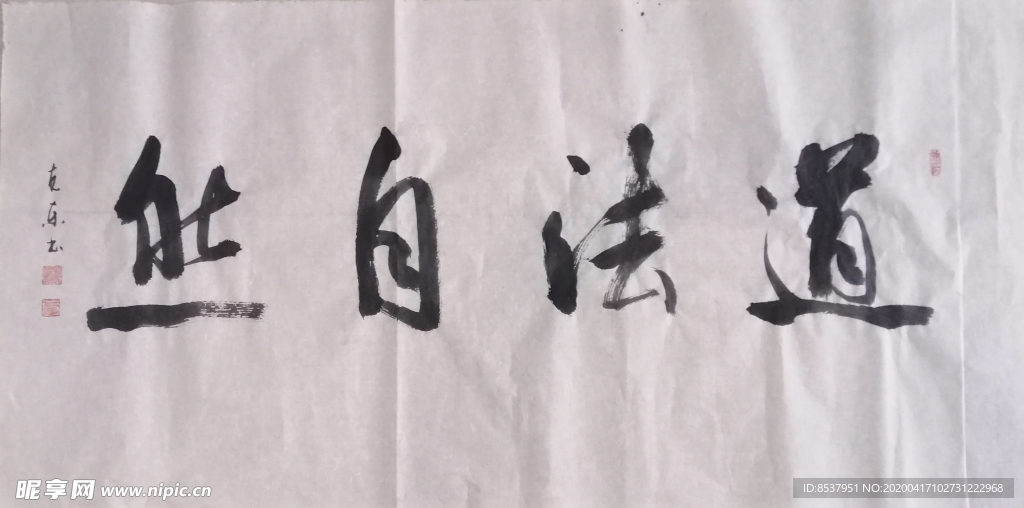 道法自然
克东书
昵享网 www.nipic.cn
ID:8537951 NO:20200417102731222968